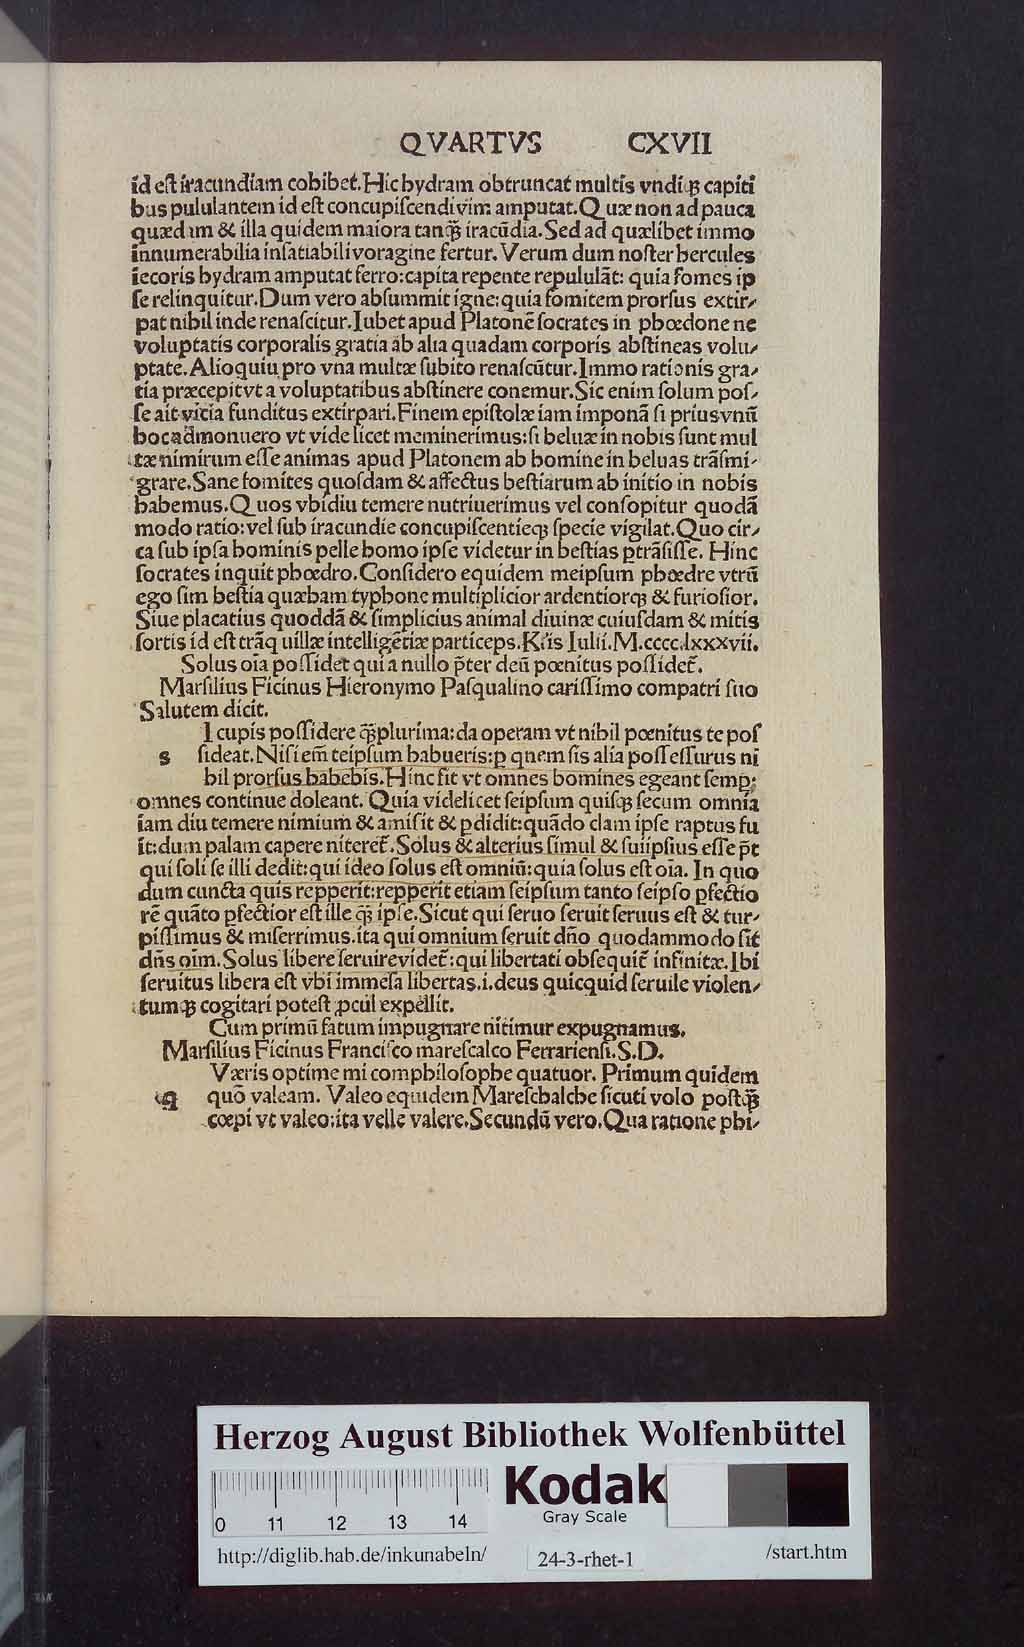 QVARTVS CXVII
id eſt iracundiam cohibet. Hic hydram obtruncat multis vndiqꝫ capiti
bus pululantem id eſt concupiſcendi vim amputat. Quæ non ad pauca
quædam & illa quidem maiora tanqꝫ̃ iracũdia. Sed ad quælibet immo
innumerabilia inſatiabili voragine fertur. Verum dum noſter hercules
iecoris hydram amputat ferro: capita repente repululãt: quia fomes ip
ſe relinquitur. Dum vero abſummit igne: quia fomitem prorſus extir-
pat nihil inde renaſcitur. Iubet apud Platonẽ ſocrates in phœdone ne
voluptatis corporalis gratia ab alia quadam corporis abſtineas volu-
ptate. Alioquiu pro vna multæ ſubito renaſcũtur. Immo rationis gra-
tia præcepit vt a voluptatibus abſtinere conemur. Sic enim ſolum poſ-
ſe ait vicia funditus extirpari. Finem epiſtolæ iam imponã ſi prius vnũ
hoc admonuero vt vide licet meminerimus: ſi beluæ in nobis ſunt mul
tæ nimirum eſſe animas apud Platonem ab homine in beluas trãſmi-
grare. Sane fomites quoſdam & affectus beſtiarum ab initio in nobis
habemus. Quos vbi diu temere nutriuerimus vel conſopitur quodã
modo ratio: vel ſub iracundie concupiſcentieqꝫ ſpecie vigilat. Quo cir-
ca ſub ipſa hominis pelle homo ipſe videtur in beſtias ꝑtrãſiſſe. Hinc
ſocrates inquit phœdro. Conſidero equidem meipſum phœdre vtrũ
ego ſim beſtia quæham typhone multiplicior ardentiorqꝫ & furioſior.
Siue placatius quoddã & ſimplicius animal diuinæ cuiuſdam & mitis
ſortis id eſt trãq uillæ intelligẽtiæ particeps. Kĩs Iulii. M.cccc.lxxxvii.
Solus oĩa poſſidet qui a nullo p̃ter deũ pœnitus poſſidet̃.
Marſilius Ficinus Hieronymo Paſqualino cariſſimo compatri ſuo
Salutem dicit.
I cupis poſſidere qꝫ̃plurima: da operam vt nihil pœnitus te poſ
s ſideat. Niſi em̃ teipſum habueris: ꝑ quem ſis alia poſſeſſurus ni
hil prorſus habebis. Hinc fit vt omnes homines egeant ſemp̱:
omnes continue doleant. Quia videlicet ſeipſum quiſqꝫ ſecum omnia
iam diu temere nimium & amiſit & ꝑdidit: quãdo clam ipſe raptus fu
it: dum palam capere niteret̃. Solus & alterius ſimul & ſuiipſius eſſe p̃t
qui ſoli ſe illi dedit: qui ideo ſolus eſt omniũ: quia ſolus eſt oĩa. In quo
dum cuncta quis repperit: repperit etiam ſeipſum tanto ſeipſo ꝑfectio
rẽ quãto ꝑfectior eſt ille qꝫ̃ ipſe. Sicut qui ſeruo ſeruit ſeruus eſt & tur-
piſſimus & miſerrimus. ita qui omnium ſeruit dño quodammodo fit
dñs oĩm. Solus libere ſeruire videt̃: qui libertati obſequit̃ infinitæ. Ibi
ſeruitus libera eſt vbi immeſa libertas .i. deus quicquid ſeruile violen-
tumqꝫ cogitari poteſt ꝓcul expellit.
Cum primũ fatum impugnare nitimur expugnamus.
Marſilius Ficinus Franciſco mareſcalco Ferrarienſi. S.D.
Væris optime mi comphiloſophe quatuor. Primum quidem
q quõ valeam. Valeo equidem Mareſchalche ſicuti volo poſtqꝫ̃
cœpi vt valeo: ita velle valere. Secundũ vero. Qua ratione phi-
Herzog August Bibliothek Wolfenbüttel
Kodak
Gray Scale
0 11 12 13 14
http://diglib.hab.de/inkunabeln/ 24-3-rhet-1 /start.htm